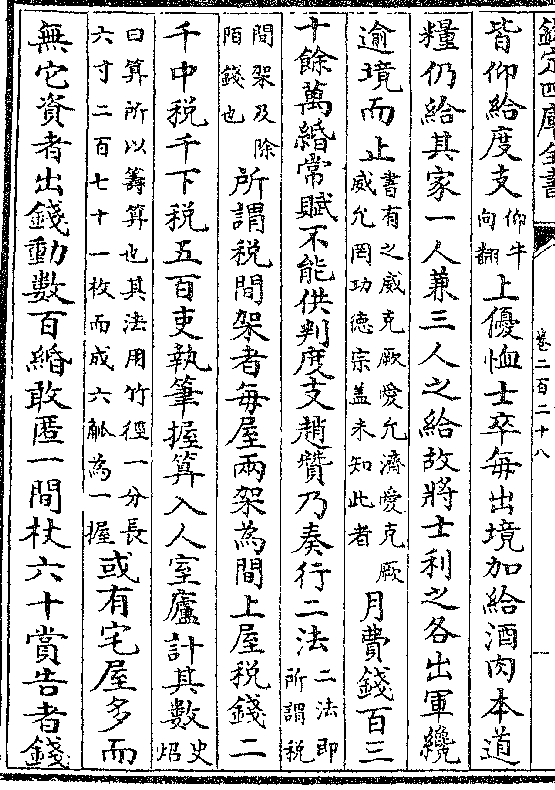 欽定四庫全書 卷二百二十八
皆仰給度支仰牛向翻上優恤士卒每出境加給酒肉本道
糧仍給其家一人兼三人之給故將士利之各出軍纔
逾境而止書有之威克厥愛允濟愛克厥威允罔功德宗蓋未知此者月費錢百三
十餘萬緡常賦不能供判度支趙贊乃奏行二法二法即所謂税
間架及除陌錢也所謂税間架者每屋兩架為間上屋税錢二
千中税千下税五百吏執筆握算入人室廬計其數史炤
曰算所以籌算也其法用竹徑一分長六寸二百七十一枚而成六觚為一握或有宅屋多而
無它資者出錢動數百緡敢匿一間杖六十賞告者錢